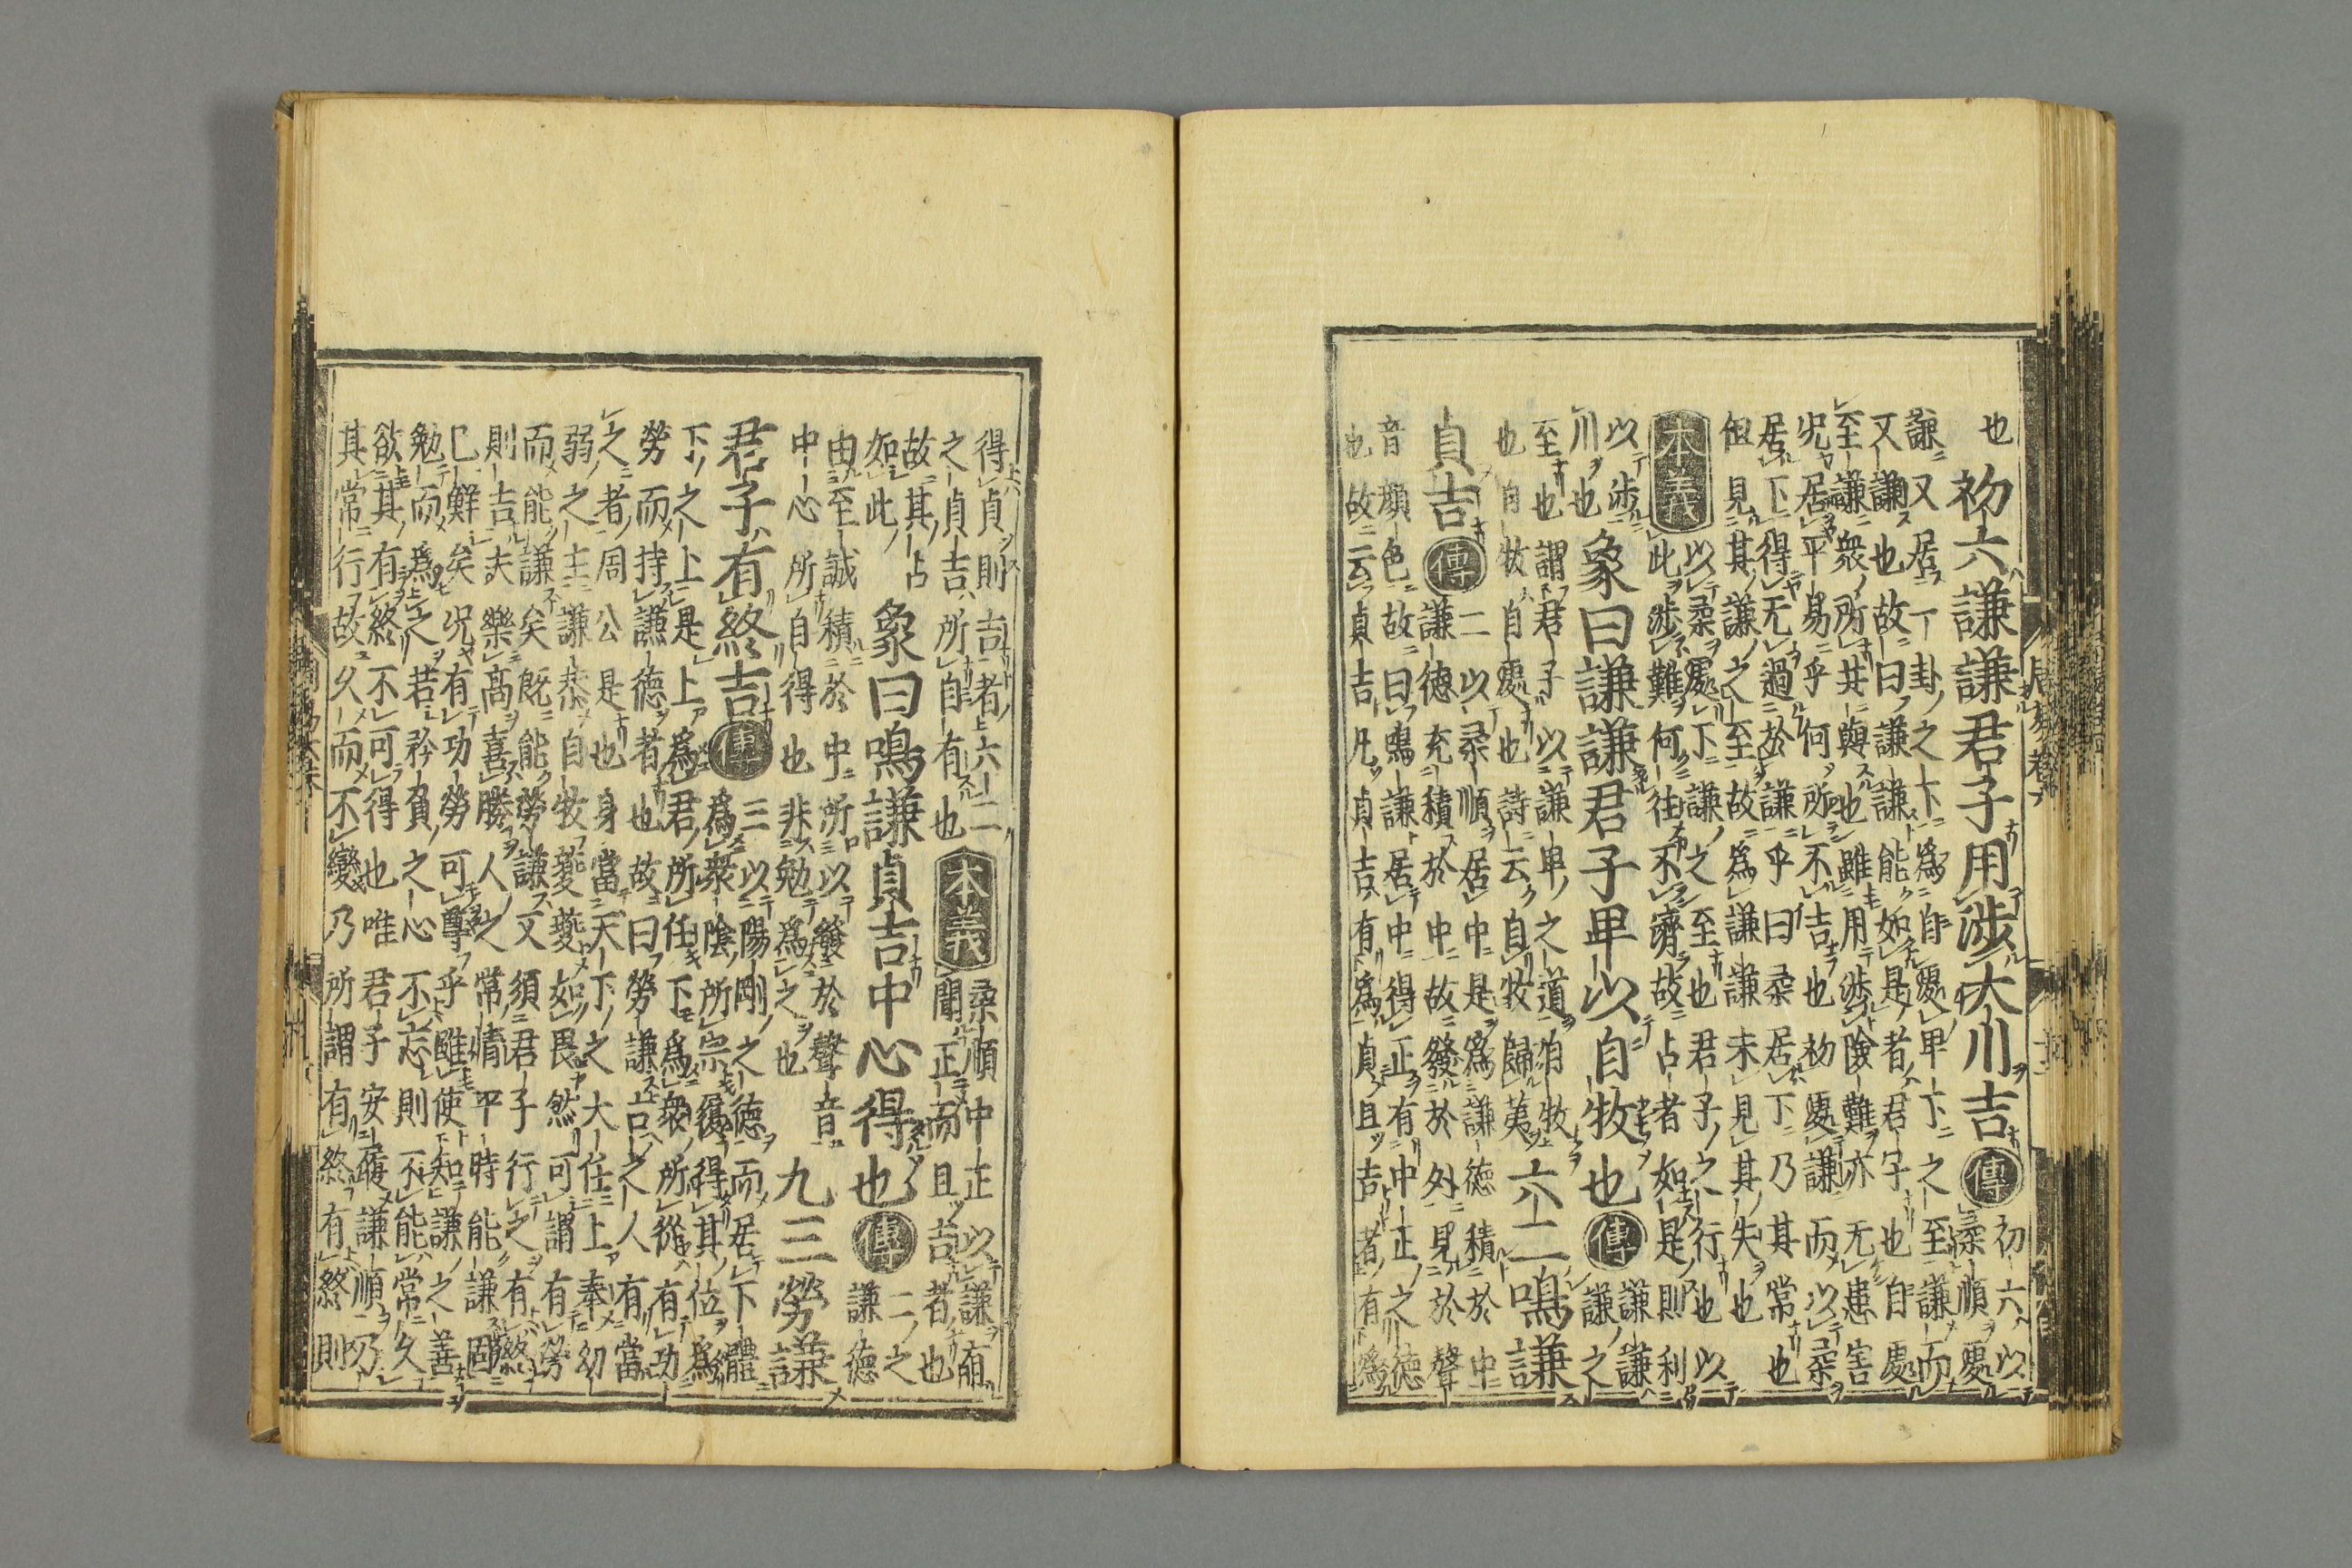 也初六謙謙君子用涉大川吉傳初六以
柔順處
謙又居一卦之下為自處卑下之至謙而
又謙也故曰謙謙能如是者君子也自處
至謙衆所共與也雖用涉險難亦无患害
況居平易乎何所不吉也初處謙而以柔
居下得无過於謙乎曰柔居下乃其常也
但見其謙之至故為謙謙未見其失也
本義以柔處下謙之至也君子之行也以
此涉難何往不濟故占者如是則利
以涉
川也
象曰謙謙君子卑以自牧也傳謙謙
謙之
至也謂君子以謙卑之道自牧
也自牧自處也詩云自牧歸荑
六二鳴謙
貞吉傳二以柔順居中是為謙德積於中
謙德充積於中故發於外見於聲
音顏色故曰鳴謙居中得正有中正之德
也故云貞吉凡貞吉有為貞且吉者有為
得貞則吉者六二
之貞吉所自有也
本義柔順中正以謙有
聞正而且吉者也
故其占
如此
象曰鳴謙貞吉中心得也傳二之
謙德
由至誠積於中所以發於聲音
中心所自得也非勉為之也
九三勞謙
君子有終吉傳三以陽剛之德而居下體
為衆陰所宗履得其位為
下之上是上為君所任下為衆所從有功
勞而持謙德者也故曰勞謙古之人有當
之者周公是也身當天下之大任上奉幼
弱之主謙恭自牧夔夔如畏然可謂有勞
而能謙矣既能勞謙又須君子行之有終
則吉夫樂高喜勝人之常情平時能謙固
已鮮矣況有功勞可尊乎雖使知謙之善
勉而為之若矜負之心不忘則不能常久
欲其有終不可得也唯君子安履謙順乃
其常行故久而不變乃所謂有終有終則